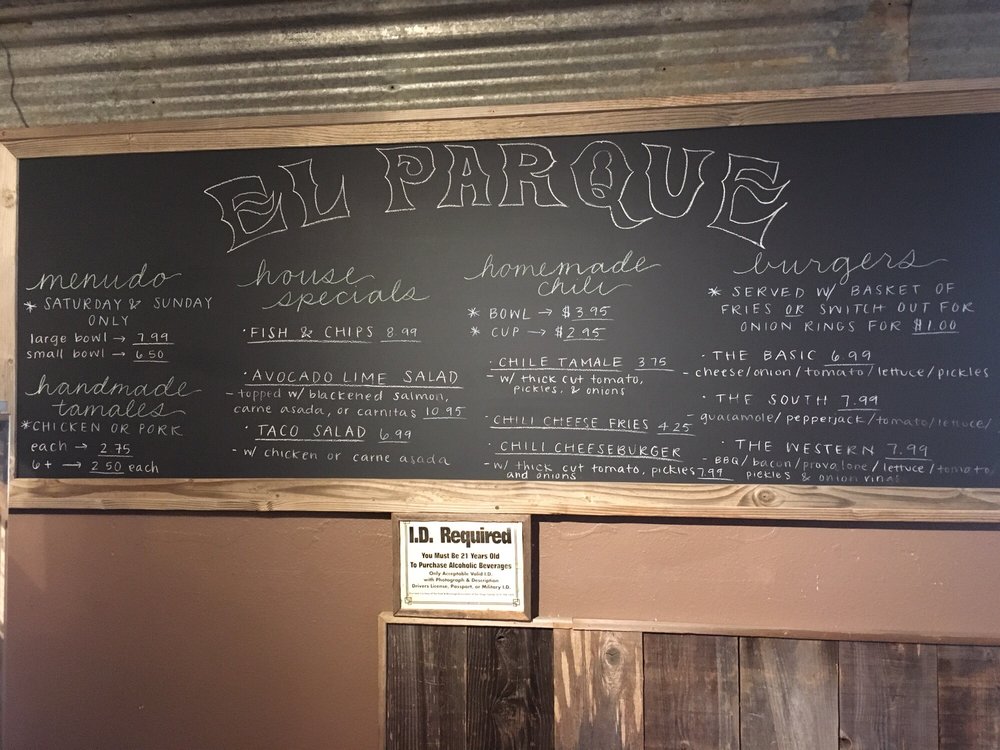 EL PARQUE
menudo
* SATURDAY & SUNDAY
ONLY
large bowl → 7.99
small bowl → 6.50
handmade
tamales
*CHICKEN OR PORK
each → 2.75
6+ → 2.50 each
house
specials
· FISH & CHIPS 8.99
· AVOCADO LIME SALAD
- topped w/ blackened salmon,
carne asada, or carnitas 10.95
· TACO SALAD 6.99
- w/ chicken or carne asada
homemade
chili
* BOWL → $3.95
* CUP → $2.95
· CHILE TAMALE 3.75
- w/ thick cut tomato,
pickles, & onions
· CHILI CHEESE FRIES 4.25
· CHILI CHEESEBURGER
- w/ thick cut tomato, pickles 7.99
and onions
burgers
* SERVED W/ BASKET OF
FRIES OR SWITCH OUT FOR
ONION RINGS FOR $1.00
· THE BASIC 6.99
- cheese/onion/tomato/lettuce/pickles
· THE SOUTH 7.99
- guacamole/pepperjack/tomato/lettuce/
· THE WESTERN 7.99
- BBQ/bacon/provalone/lettuce/tomato
pickles & onion rings
I.D. Required
You Must Be 21 Years Old
To Purchase Alcoholic Beverages
Only Acceptable Valid I.D.
with Photograph & Description
Drivers License, Passport, or Military I.D.